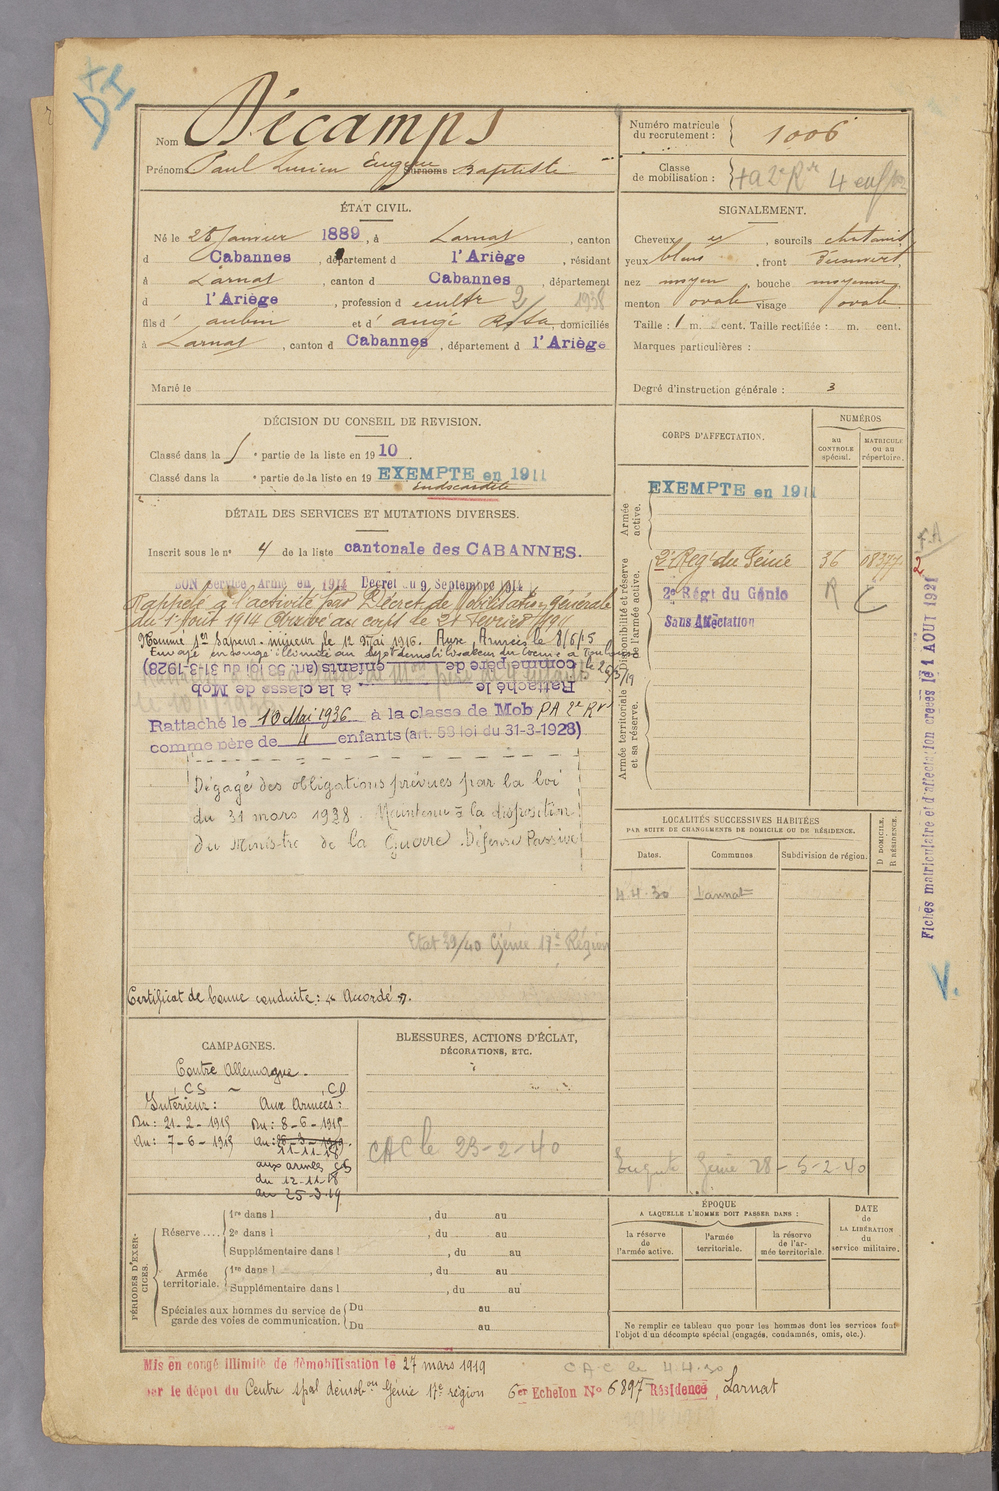 Nom Décamps
Prénoms Paul Lucien Eugène Surnoms Baptiste
Numéro matricule du recrutement : 1006
Classe de mobilisation :
ÉTAT CIVIL.
Né le 28 Janvier 1889, à Larnat, canton
d Cabannes, département d l'Ariège, résidant
à Larnat, canton d Cabannes, département
d l'Ariège, profession d cultr 2 1938
fils d' aubin et d' augé Rosa, domiciliés
à Larnat, canton d Cabannes, département d l'Ariège
Marié le
SIGNALEMENT.
Cheveux et, sourcils chatains
yeux bleus, front découvert,
nez moyen, bouche moyenne,
menton ovale visage ovale.
Taille : 1 m. cent. Taille rectifiée : m. cent.
Marques particulières :
Degré d'instruction générale : 3
DÉCISION DU CONSEIL DE REVISION.
Classé dans la e partie de la liste en 1910.
Classé dans la e partie de la liste en 19 EXEMPTE en 1911
endocardite
DÉTAIL DES SERVICES ET MUTATIONS DIVERSES.
Inscrit sous le no 4 de la liste cantonale des CABANNES.
BON Service Armé en 1914 Décret du 9 Septembre 1914
Rappelé à l'activité par Décret de Mobilisation générale
du 1er Août 1914 Arrivé au corps le 21 Février 1915
Nommé 1er Sapeur-mineur le 12 Mai 1916. Aux Armées le 8/6/15
Envoyé en congé illimité au dépôt démobilisateur du Génie à Toulouse
Rattaché le à la classe de Mob
comme père de enfants (art. 58 loi du 31-3-1928)
Rattaché le 10 Mai 1936 à la classe de Mob PA 2e Rr
comme père de 4 enfants (art. 58 loi du 31-3-1928)
Dégagé des obligations prévues par la loi
du 31 mars 1928. Maintenu à la disposition
du Ministre de la Guerre. Défense Passive
Etat 39/40 Génie 17e Région
Certificat de bonne conduite : "Accordé".
CORPS D'AFFECTATION.
NUMÉROS
au CONTROLE spécial.
MATRICULE ou au répertoire.
Armée active.
EXEMPTE en 1911
Disponibilité et réserve de l'armée active.
2e Regt du Génie 36 08377
2e Régt du Génie R
Sans Affectation
Armée territoriale et sa réserve.
LOCALITÉS SUCCESSIVES HABITÉES
PAR SUITE DE CHANGEMENTS DE DOMICILE OU DE RÉSIDENCE.
Dates. Communes Subdivision de région. D DOMICILE. R RÉSIDENCE.
4.4.30 Larnat
Génie 28-5-2-40
Fiches matriculaire et d'affectation créées le 1 AOUT 1921
V.
CAMPAGNES.
Contre Allemagne.
CS CD
Intérieur : Aux Armées :
Du : 21-2-1915 Du : 8-6-1915
Au : 7-6-1915 Au : 25-3-1919.
11-11-18
aux armées CS
du 12-11-18
au 25-3-19
BLESSURES, ACTIONS D'ÉCLAT,
DÉCORATIONS, ETC.
CAC le 23-2-40
PÉRIODES D'EXERCICES.
Réserve .... 1re dans l , du au
2e dans l , du au
Supplémentaire dans l , du au
Armée territoriale. 1re dans l , du au
Supplémentaire dans l , du au
Spéciales aux hommes du service de garde des voies de communication. Du au
Du au
ÉPOQUE
A LAQUELLE L'HOMME DOIT PASSER DANS :
la réserve de l'armée active.
l'armée territoriale.
la réserve de l'armée territoriale.
DATE de LA LIBÉRATION du service militaire.
Ne remplir ce tableau que pour les hommes dont les services font
l'objet d'un décompte spécial (engagés, condamnés, omis, etc.).
Mis en congé illimité de démobilisation le 27 mars 1919
CAC le 4.4.30
par le dépôt du Centre spal démobon Génie 17e région 6er Echelon No 6897 Résidence, Larnat